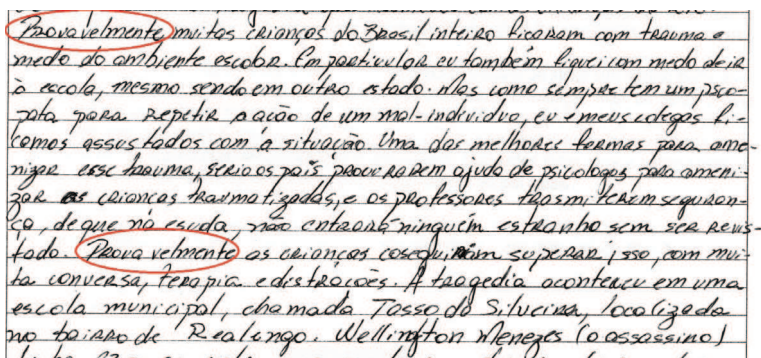 Provavelmente muitas crianças do Brasil inteiro ficaram com trauma e
medo do ambiente escolar. Em particular eu também fiquei com medo de ir
à escola, mesmo sendo em outro estado. Mas como sempre tem um psco-
pata para repetir a ação de um mal-individuo, eu e meus colegas fi-
camos assustados com a situação. Uma das melhores formas para ame-
nizar esse trauma, seria os pais procurarem ajuda de psicologos para ameni-
zar as crianças traumatizadas, e os professores trasmiterem seguran-
ça, de que na escola, não entrará ninguém estranho sem ser revis-
tado. Prova velmente as crianças coseguiram superar isso, com mui-
ta conversa, terapia e distrações. A tragedia aconteceu em uma
escola municipal, chamada Tasso da Silveira, localizada
no bairro de Realengo. Wellington Menezes (o assassino)